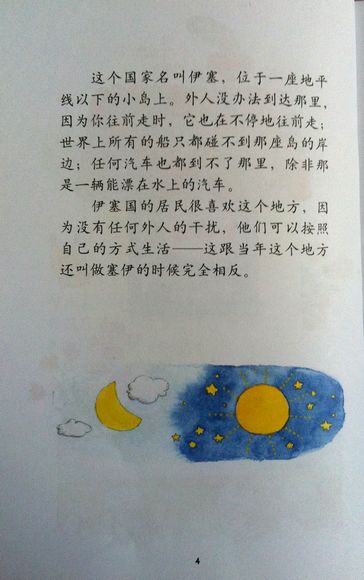 这个国家名叫伊塞，位于一座地平
线以下的小岛上。外人没办法到达那里，
因为你往前走时，它也在不停地往前走；
世界上所有的船只都碰不到那座岛的岸
边；任何汽车也都到不了那里，除非那
是一辆能漂在水上的汽车。
伊塞国的居民很喜欢这个地方，因
为没有任何外人的干扰，他们可以按照
自己的方式生活——这跟当年这个地方
还叫做塞伊的时候完全相反。
4